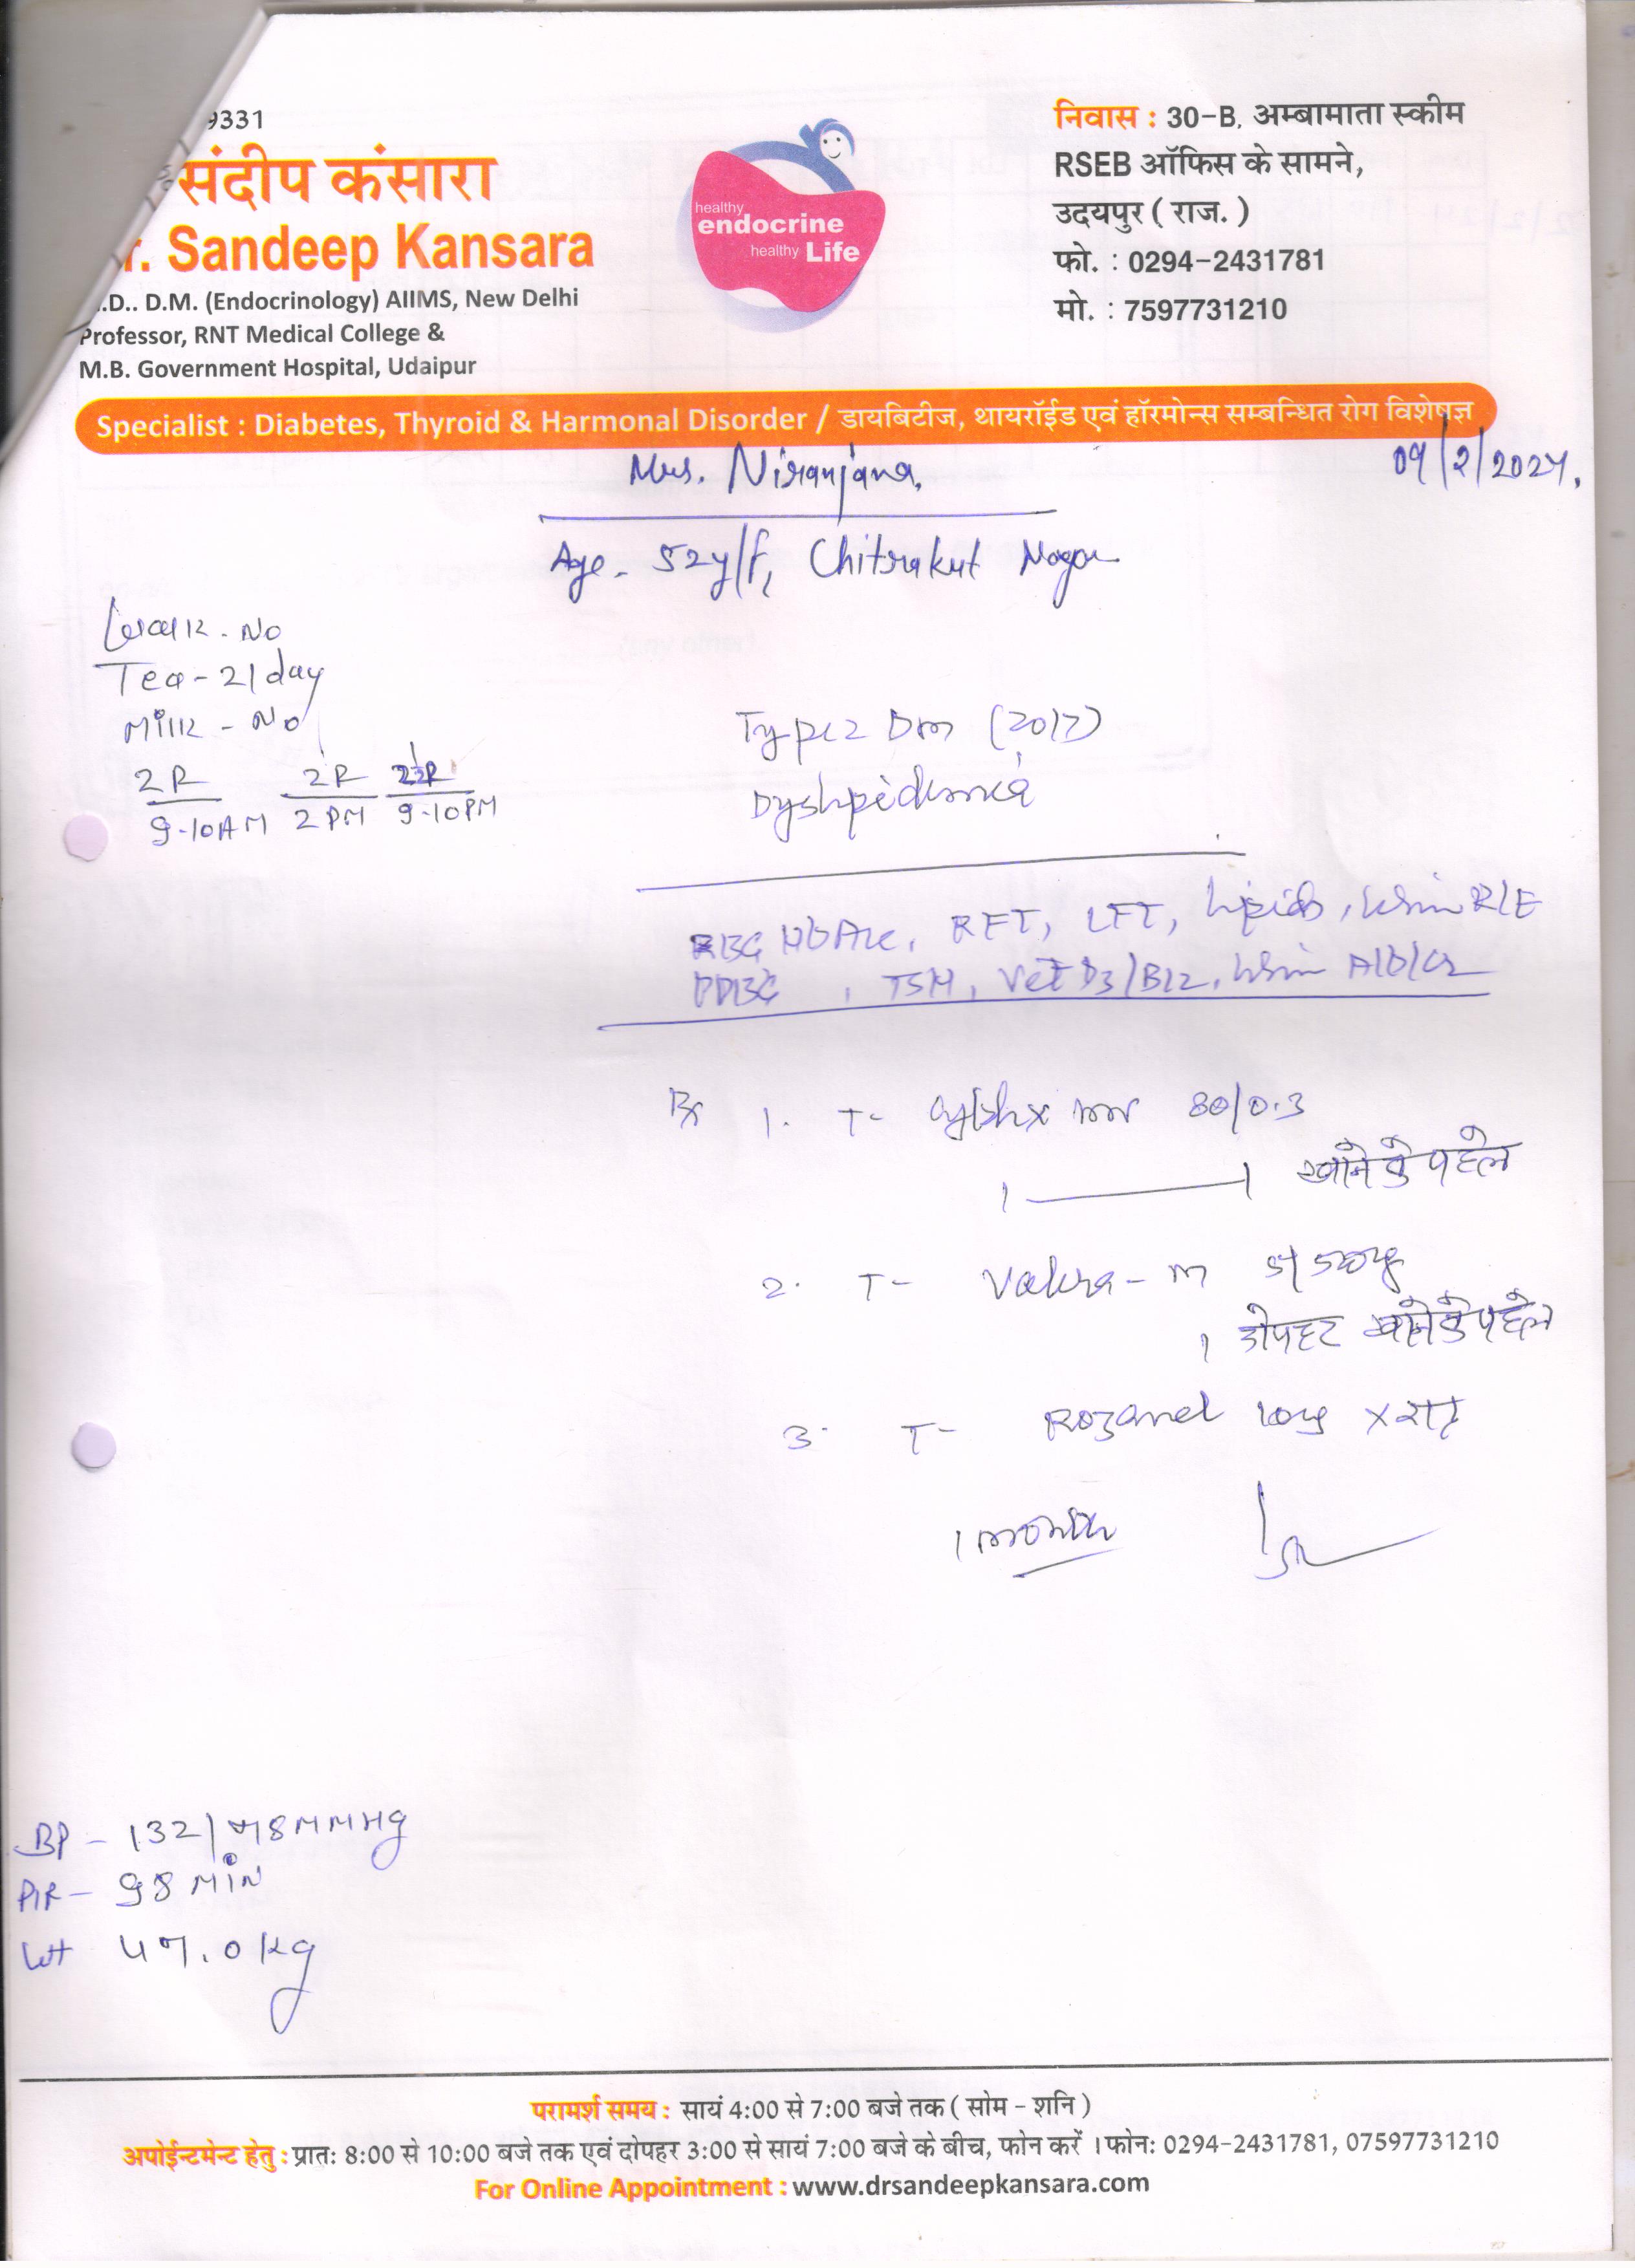 9331
संदीप कंसारा
r. Sandeep Kansara
.D.. D.M. (Endocrinology) AIIMS, New Delhi
Professor, RNT Medical College &
M.B. Government Hospital, Udaipur
healthy
endocrine
healthy Life
निवास : 30-B, अम्बामाता स्कीम
RSEB ऑफिस के सामने,
उदयपुर ( राज. )
फो. : 0294-2431781
मो. : 7597731210
Specialist : Diabetes, Thyroid & Harmonal Disorder / डायबिटीज, थायरॉईड एवं हॉरमोन्स सम्बन्धित रोग विशेषज्ञ
Mrs. Niranjana,
09/2/2024.
Age - 52y/f, Chitrakut Nagar
Walk - No
Tea - 2/day
Milk - No
2R 2R 2½R
9-10AM 2PM 9-10PM
Type 2 Dm (2017)
Dyslipidemia
HbA1c, RFT, LFT, Lipids, Urine R/E
, TSH, Vit D3/B12, Urine Alb/Cr
Rx 1. T- 80/0.3
1 ——— 1 खाने के पहले
2. T- - M 5/500mg
1 दोपहर खाने के पहले
3. T- Rozavel 10mg x रात
1 month
BP - 132/78 MMHg
P/R - 98 MiN
Wt 47.0 kg
परामर्श समय : सायं 4:00 से 7:00 बजे तक ( सोम - शनि )
अपोईन्टमेन्ट हेतु : प्रातः 8:00 से 10:00 बजे तक एवं दोपहर 3:00 से सायं 7:00 बजे के बीच, फोन करें । फोनः 0294-2431781, 07597731210
For Online Appointment : www.drsandeepkansara.com